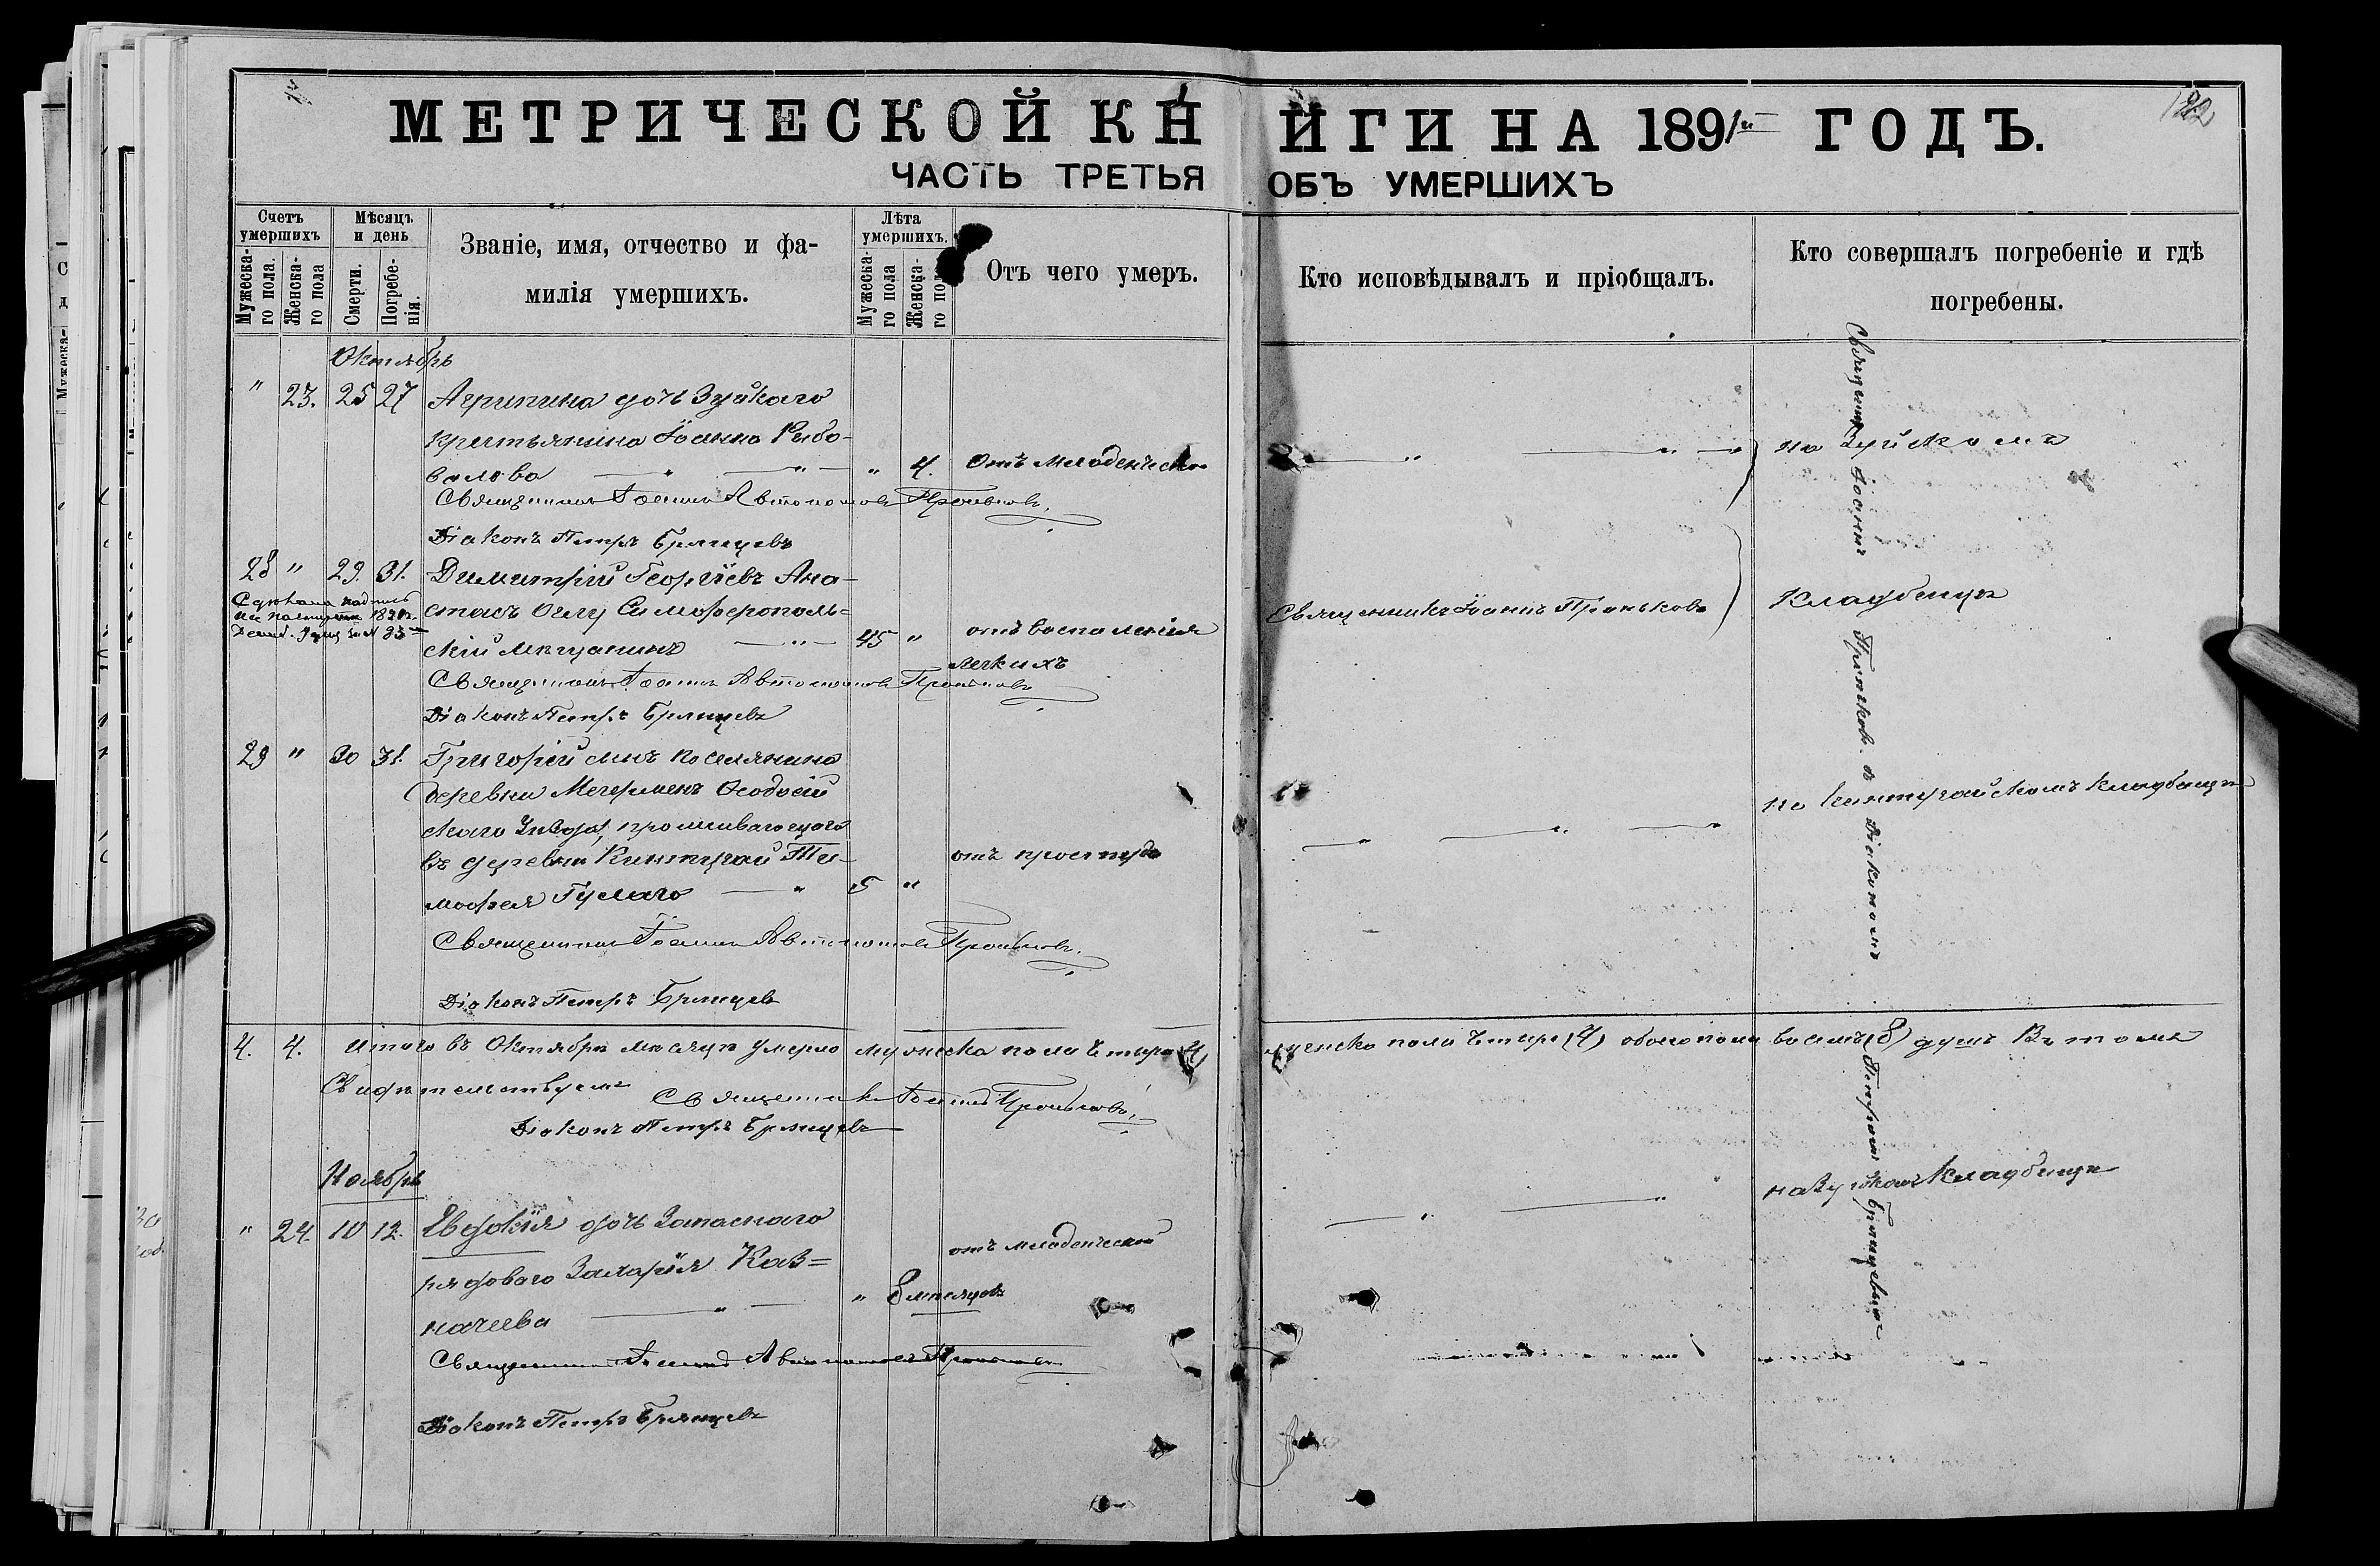 МЕТРИЧЕСКОЙ КНИГИ НА 1891й ГОДЪ.
ЧАСТЬ ТРЕТЬЯ ОБЪ УМЕРШИХЪ
Счетъ умершихъ
Мужеска-го пола.
Женска-го пола
Мѣсяцъ и день
Смерти.
Погребе-нія.
Званіе, имя, отчество и фа-
милія умершихъ.
Лѣта умершихъ.
Мужеска-го пола
Женска-го пола
Отъ чего умеръ.
Кто исповѣдывалъ и пріобщалъ.
Кто совершалъ погребеніе и гдѣ
погребены.
Октябрь
" 23. 25 27 Агрипина дочь Зуйскаго
крестьянина Іоанна Рибо-
валова " 4. Отъ младенческ
на Зуйскомъ
Священникъ Іоаннъ Автономовъ
Діаконъ Петръ Брянцевъ
28 " 29. 31. Димитрій Георгіевъ Ана-
стасъ Оглу Симферополь-
скій мѣщанинъ 45 " отъ воспаленія
легкихъ
Священникъ Іоаннъ
кладбищѣ
Священникъ Іоаннъ Автономовъ
Діаконъ Петръ Брянцевъ
29 " 30 31. Григорій сынъ поселянина
деревни Феодосій
скаго Уѣзда, проживающаго
въ деревни Кинтугай Ти-
мофея Гулаго 5 " отъ простуды
на Кинтугайскомъ кладбищѣ
Священникъ Іоаннъ Автономовъ
Діаконъ Петръ Брянцевъ
4. 4. Итого въ Октябрѣ мѣсяцѣ умерло мужеска пола четыре (4) женска пола четыре (4) обоего пола восемь (8) душъ Въ томъ
Свидѣтельствуемъ Священникъ Іоаннъ
Діаконъ Петръ Брянцевъ
Ноябрь
" 24. 10 12. Евдокія дочь Запаснаго
рядоваго Захарія Каз-
начеева " 8 мѣсяцовъ отъ младенческой
на Зуйскомъ кладбищѣ
Священникъ Іоаннъ Автономовъ
Діаконъ Петръ Брянцевъ
Священникъ Іоаннъ
съ Діакономъ
Петромъ Брянцевымъ